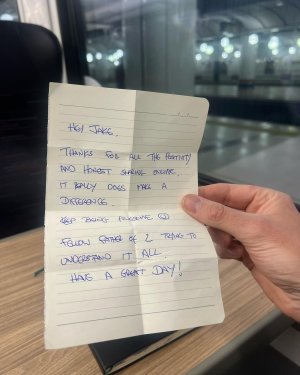 HEY JAKE,
THANKS FOR ALL THE POSITIVITY
AND HONEST SHARING ONLINE.
IT REALLY DOES MAKE A
DIFFERENCE.
KEEP BEING AWESOME
FELLOW FATHER OF 2 TRYING TO
UNDERSTAND IT ALL.
HAVE A GREAT DAY!